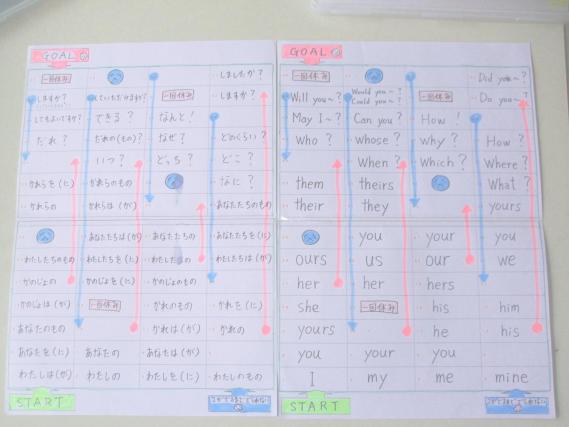 GOAL
一回休み しましたか？
しますか？ していただけますか？ 一回休み しますか？
してもよいですか？ できる？ なんと！
だれ？ だれの(もの)？ なぜ？ どのくらい？
いつ？ どっち？ どこ？
かれらを(に) かれらのもの なに？
かれらの かれらは(が) あなたたちのもの
あなたたちは(が) あなたたちの
わたしたちのもの わたしたちを(に) わたしたちの わたしたちは(が)
かのじょの かのじょを(に) かのじょのもの
かのじょは(が) 一回休み かれのもの かれを(に)
あなたのもの かれは(が) かれの
あなたを(に) あなたの あなたは(が)
わたしは(が) わたしの わたしを(に) わたしのもの
START
GOAL
一回休み Did you~?
Will you~? Would you~? 一回休み Do you~?
Could you~?
May I~? Can you? How!
Who? whose? why? How?
When? Which? Where?
them theirs What?
their they yours
you your you
ours us our we
her her hers
she 一回休み his him
yours he his
you your you
I my me mine
START